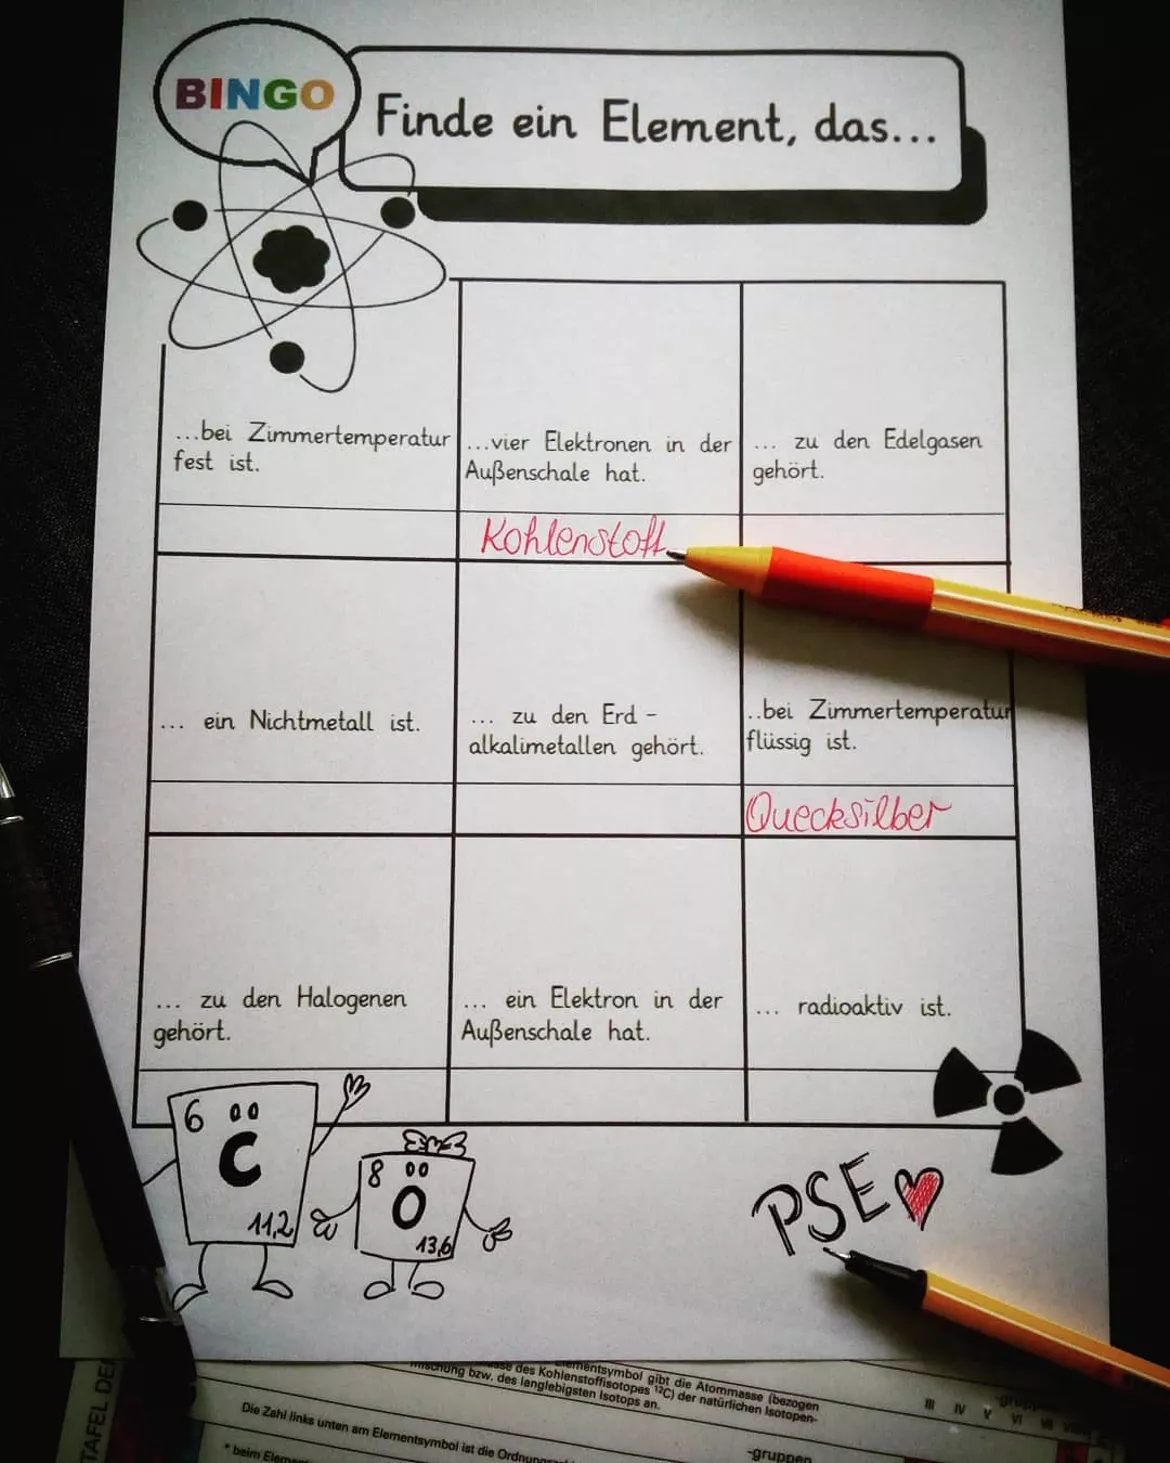 BINGO
Finde ein Element, das...
...bei Zimmertemperatur
fest ist.
...vier Elektronen in der
Außenschale hat.
Kohlenstoff
... zu den Edelgasen
gehört.
... ein Nichtmetall ist.
... zu den Erd-
alkalimetallen gehört.
..bei Zimmertemperatur
flüssig ist.
Quecksilber
... zu den Halogenen
gehört.
... ein Elektron in der
Außenschale hat.
... radioaktiv ist.
6
C
11,2
8
O
13,6
PSE
TAFEL DE
Elementsymbol gibt die Atommasse (bezogen
sse des Kohlenstoffisotopes ¹²C) der natürlichen Isotopen-
mischung bzw. des langlebigsten Isotops an.
Die Zahl links unten am Elementsymbol ist die Ordnungs
* beim Elem
III IV V VI VII
-gruppen